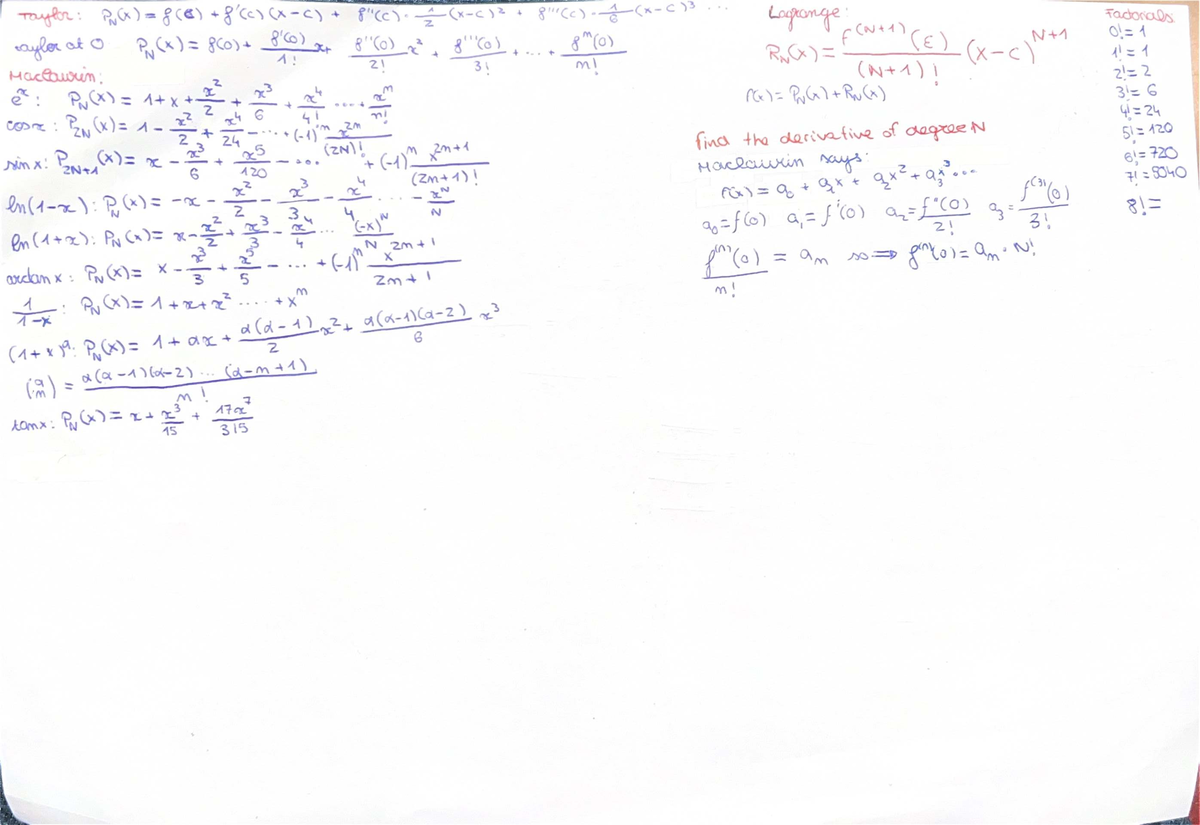 Taylor: P_N(x) = f(c) + f'(c)(x-c) + f''(c)·1/2(x-c)² + f'''(c)·1/6(x-c)³ ...
Taylor at 0 P_N(x) = f(0) + f'(0)/1! x + f''(0)/2! x² + f'''(0)/3! + ... + f^m(0)/m!
Maclaurin:
e^x: P_N(x) = 1 + x + x²/2 + x³/6 + x⁴/4! ... + x^n/n!
cos x: P_2N(x) = 1 - x²/2 + x⁴/24 - ... (-1)^n x^2n/(2N)!
sin x: P_2N+1(x) = x - x³/6 + x⁵/120 - ... + (-1)^n x^2n+1/(2n+1)!
ln(1-x): P_N(x) = -x - x²/2 - x³/3 - x⁴/4 ... - x^N/N
ln(1+x): P_N(x) = x - x²/2 + x³/3 - x⁴/4 ... (-x)^N/N
arctan x: P_N(x) = x - x³/3 + x⁵/5 - ... + (-1)^n x^2n+1/2n+1
1/1-x: P_N(x) = 1 + x + x² ..... + x^n
(1+x)^α: P_N(x) = 1 + αx + α(α-1)/2 x² + α(α-1)(α-2)/6 x³
(α n) = α(α-1)(α-2) ... (α-n+1)/n!
tan x: P_N(x) = x + x³/15 + 17x⁷/315
Lagrange:
R_N(x) = f^(N+1)(ε)/(N+1)! (x-c)^N+1
f(x) = P_N(x) + R_N(x)
find the derivative of degree N
Maclaurin says:
f(x) = a₀ + a₁x + a₂x² + a₃x³ ...
a₀ = f(0) a₁ = f'(0) a₂ = f''(0)/2! a₃ = f^(3)(0)/3!
f^(n)(0)/n! = a_n so ⟹ f^(n)(0) = a_n · N!
Factorials
0! = 1
1! = 1
2! = 2
3! = 6
4! = 24
5! = 120
6! = 720
7! = 5040
8! =